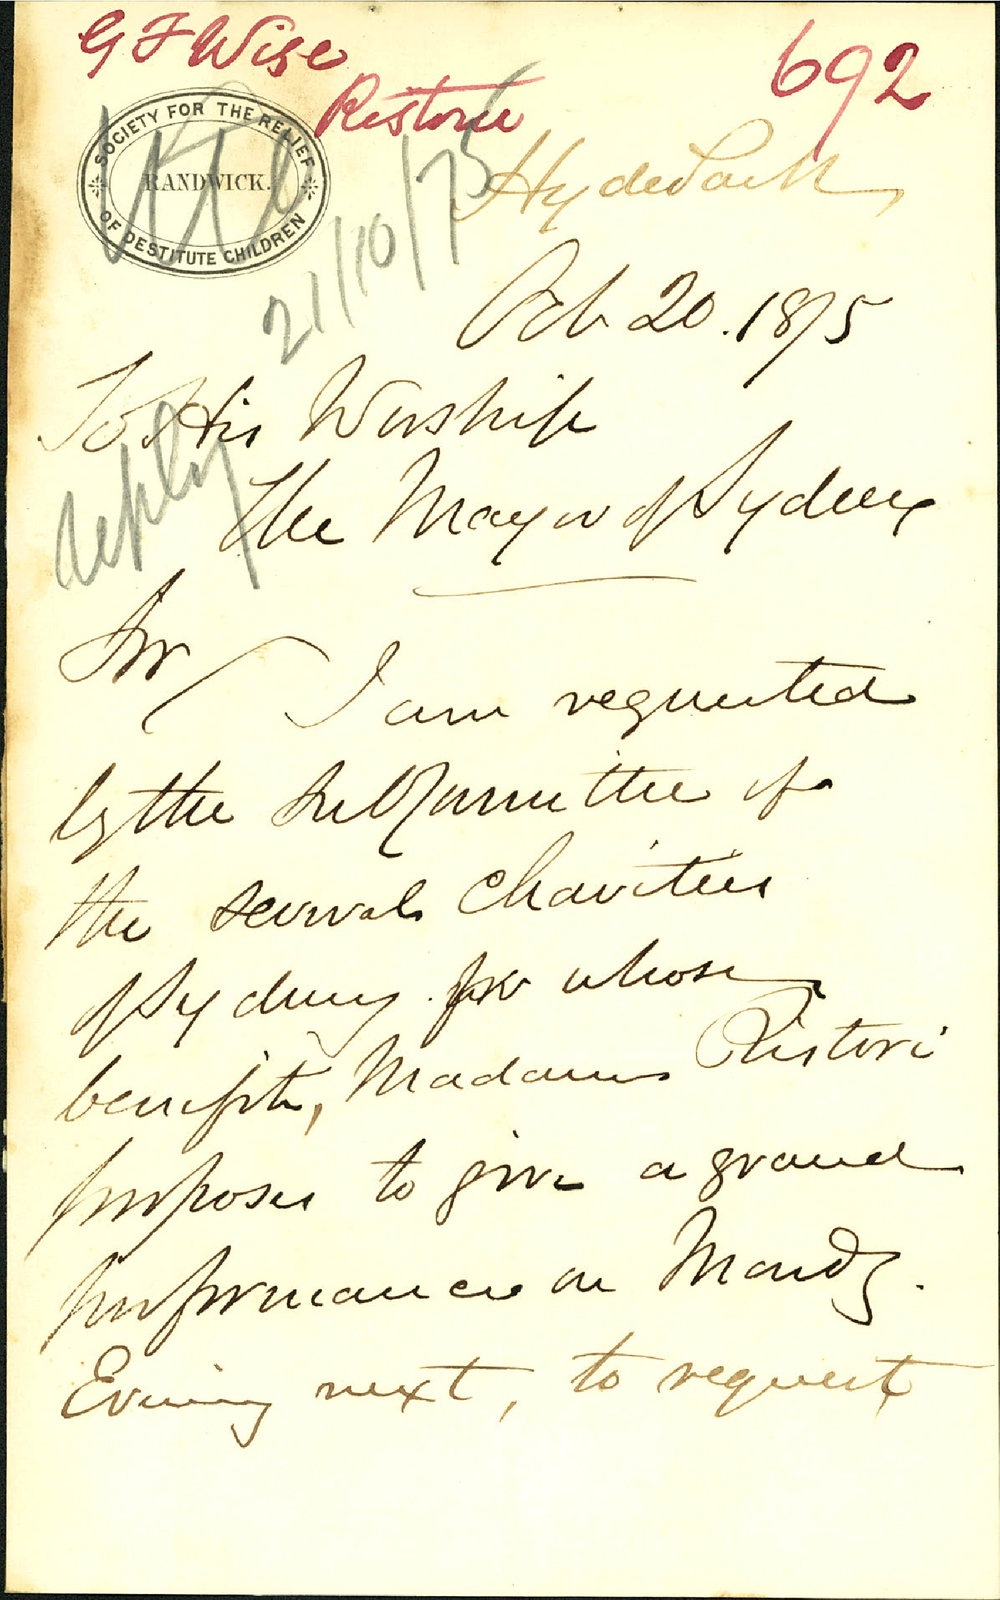 G F Wise
Ristori
692
SOCIETY FOR THE RELIEF
RANDWICK.
OF DESTITUTE CHILDREN
21/10/75
Hyde Park
Oct 20. 1875
To His Worship
reply
The Mayor of Sydney
Sir
I am requested
by the Sub Committee of
the several Charities
of Sydney for whose
benefit, Madame Ristori
proposes to give a grand
performance on Mondy.
Evening next, to request